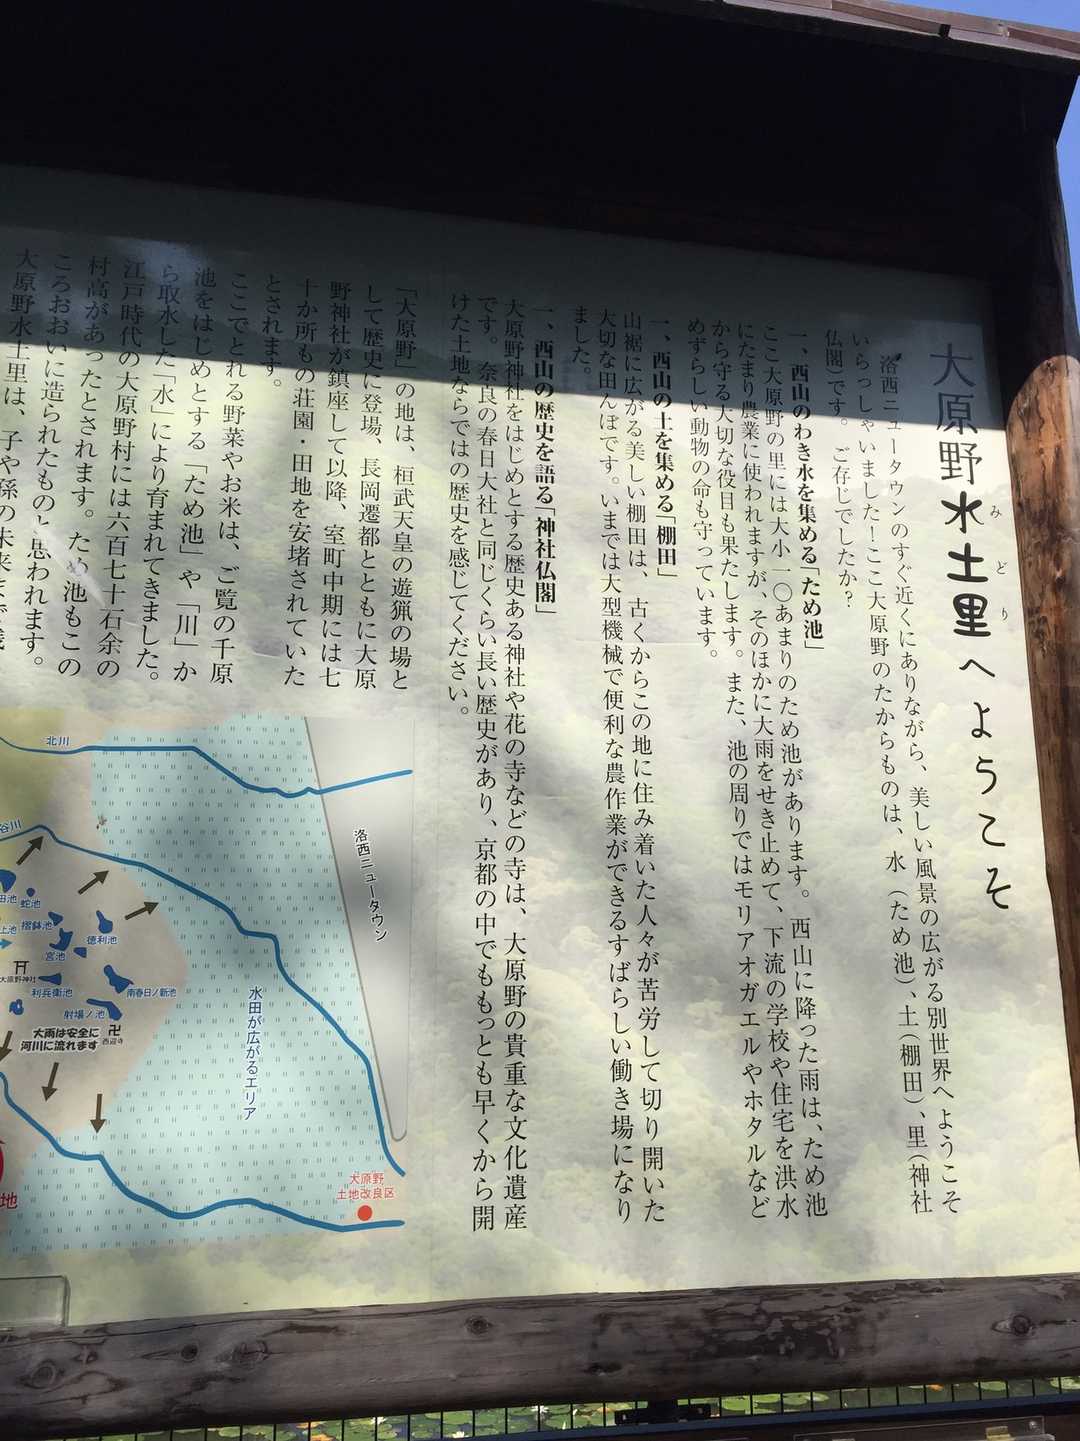 大原野水土里へようこそ
みどり
洛西ニュータウンのすぐ近くにありながら、美しい風景の広がる別世界へようこそ
いらっしゃいました！ここ大原野のたからものは、水（ため池）、土（棚田）、里（神社
仏閣）です。ご存じでしたか？
一、西山のわき水を集める「ため池」
ここ大原野の里には大小一〇あまりのため池があります。西山に降った雨は、ため池
にたまり農業に使われますが、そのほかに大雨をせき止めて、下流の学校や住宅を洪水
から守る大切な役目も果たします。また、池の周りではモリアオガエルやホタルなど
めずらしい動物の命も守っています。
一、西山の土を集める「棚田」
山裾に広がる美しい棚田は、古くからこの地に住み着いた人々が苦労して切り開いた
大切な田んぼです。いまでは大型機械で便利な農作業ができるすばらしい働き場になり
ました。
一、西山の歴史を語る「神社仏閣」
大原野神社をはじめとする歴史ある神社や花の寺などの寺は、大原野の貴重な文化遺産
です。奈良の春日大社と同じくらい長い歴史があり、京都の中でももっとも早くから開
けた土地ならではの歴史を感じてください。
「大原野」の地は、桓武天皇の遊猟の場と
して歴史に登場、長岡遷都とともに大原
野神社が鎮座して以降、室町中期には七
十か所もの荘園・田地を安堵されていた
とされます。
ここでとれる野菜やお米は、ご覧の千原
池をはじめとする「ため池」や「川」か
ら取水した「水」により育まれてきました。
江戸時代の大原野村には六百七十石余の
村高があったとされます。ため池もこの
ころおおいに造られたものと思われます。
大原野水土里は、子や孫の未来まで
北川
谷川
洛西ニュータウン
田池
蛇池
上池
摺鉢池
徳利池
宮池
大原野神社
利兵衛池
南春日ノ新池
射場ノ池
大雨は安全に
河川に流れます
西迎寺
水田が広がるエリア
大原野
土地改良区
地